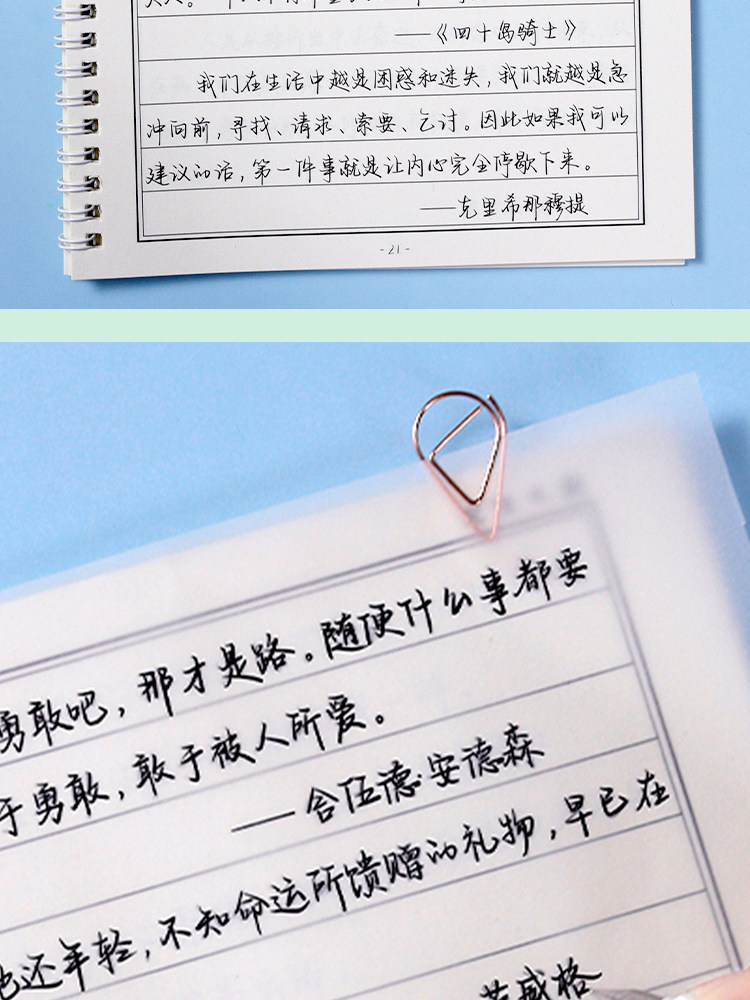 ——《四十岛骑士》
我们在生活中越是困惑和迷失，我们就越是急
冲向前，寻找、请求、索要、乞讨。因此如果我可以
建议的话，第一件事就是让内心完全停歇下来。
——克里希那穆提
-21-
勇敢吧，那才是路。随便什么事都要
于勇敢，敢于被人所爱。
——舍伍德·安德森
她还年轻，不知命运所馈赠的礼物，早已在
茨威格